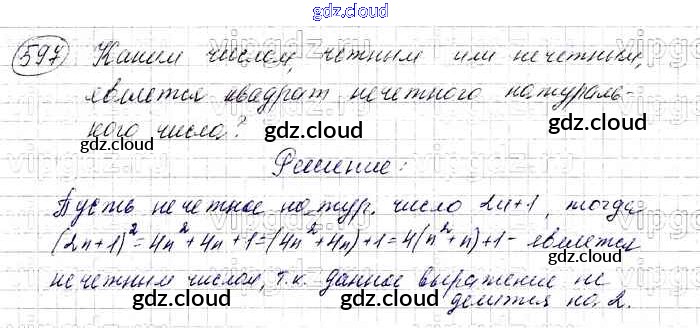 gdz.cloud
597 Каким числом, четным или нечетным,
является квадрат нечетного натураль-
ного числа?
gdz.cloud gdz.cloud
Решение:
gdz.cloud gdz.cloud
Пусть нечетное натур. число 2n+1, тогда
(2n+1)²=4n²+4n+1=(4n²+4n)+1=4(n²+n)+1- является
нечетным числом, т.к. данное выражение не
делится на 2.
gdz.cloud gdz.cloud gdz.cloud